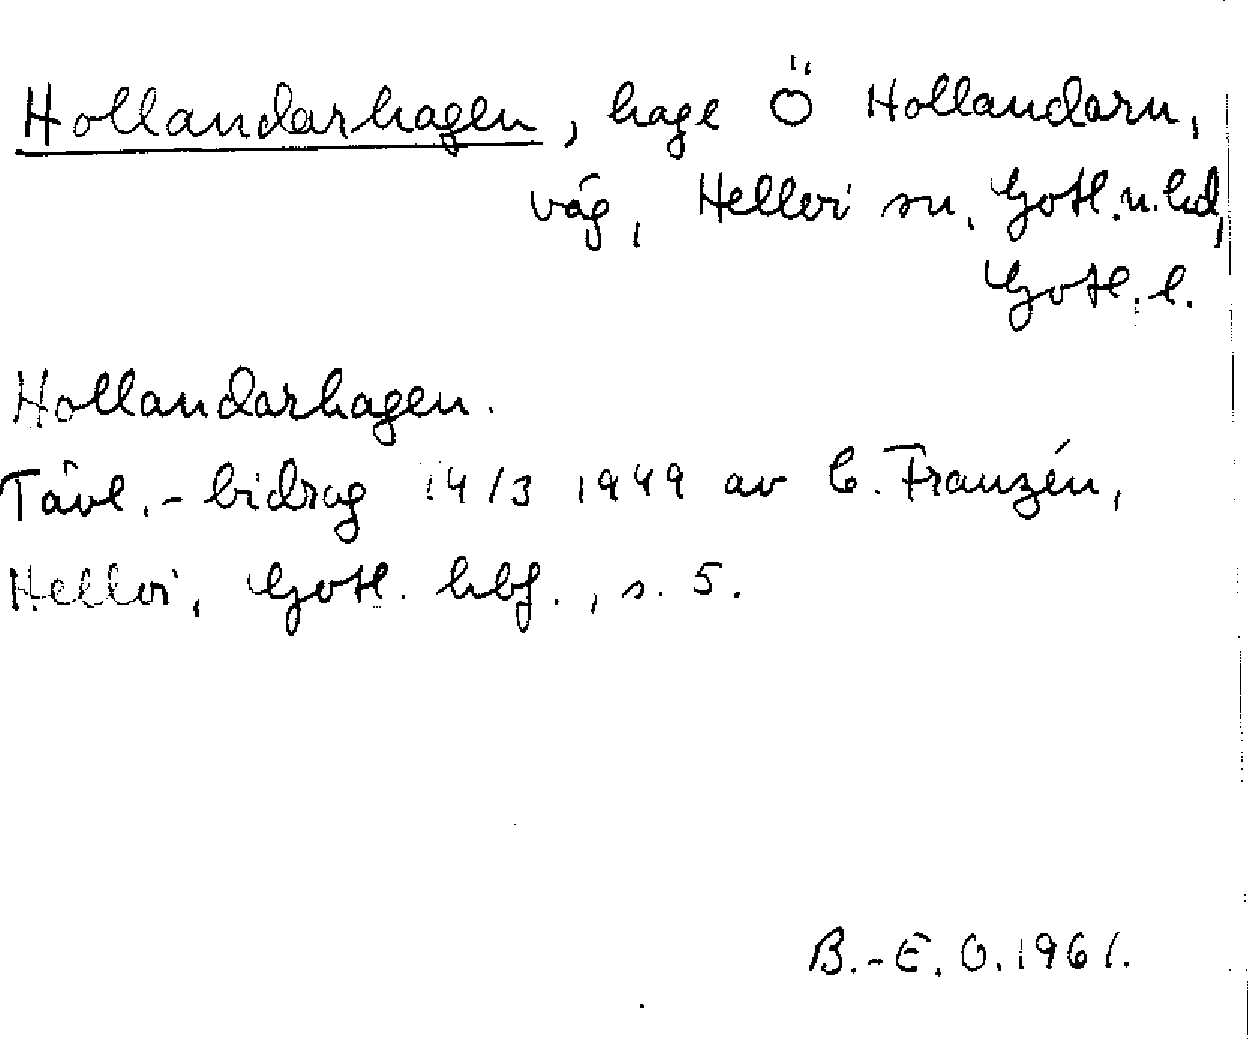 Hollandarhagen, hage Ö Hollandarn,
väg, Hellvi sn, Gotl. n. hd,
Gotl. l.
Hollandarhagen.
Tävl.-bidrag 14/3 1949 av C. Franzén,
Hellvi, Gotl. hbf., s. 5.
B.-E. O. 1961.